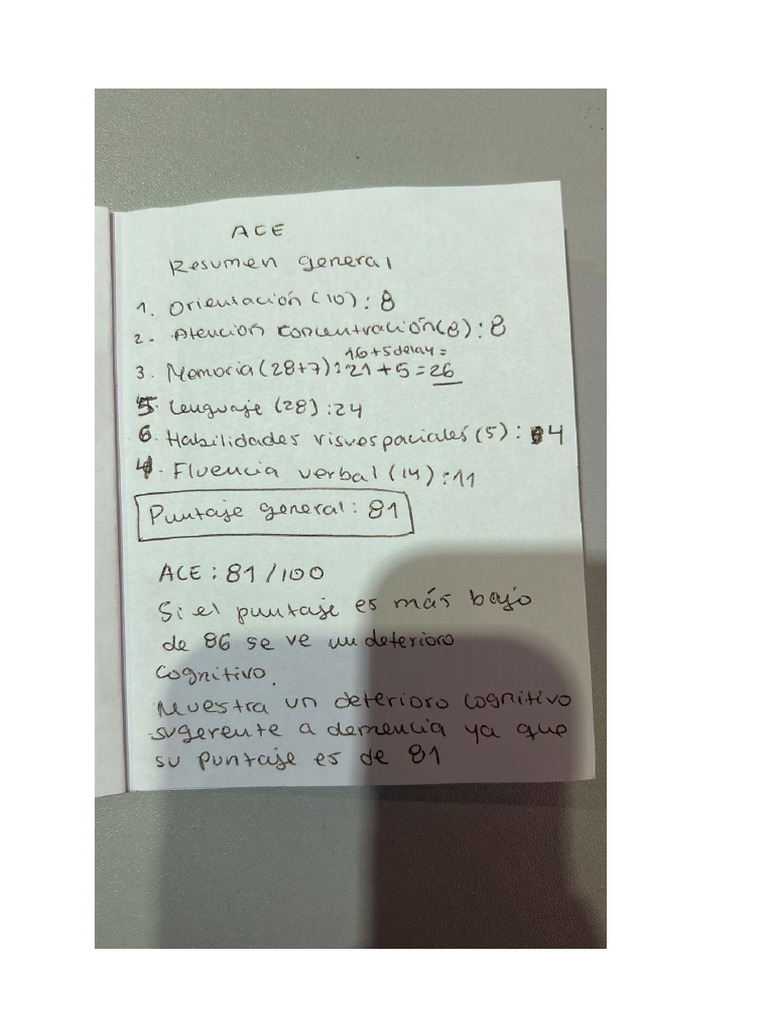 ACE
Resumen general
1. Orientación (10) : 8
2. Atención concentración (8) : 8
16 + 5 delay =
3. Memoria (28+7) : 21 + 5 = 26
5. Lenguaje (28) : 24
6. Habilidades visuospaciales (5) : 4
4. Fluencia verbal (14) : 11
Puntaje general : 81
ACE : 81/100
Si el puntaje es más bajo
de 86 se ve un deterioro
cognitivo.
Muestra un deterioro cognitivo
sugerente a demencia ya que
su puntaje es de 81